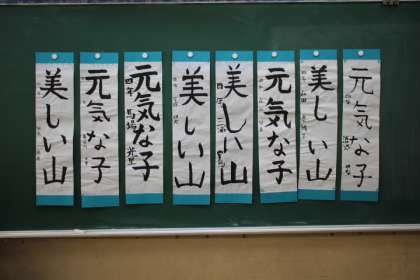 元気な子
美しい山
元気な子
美しい山
美しい山
元気な子
四年 馬場
元気な子
美しい山